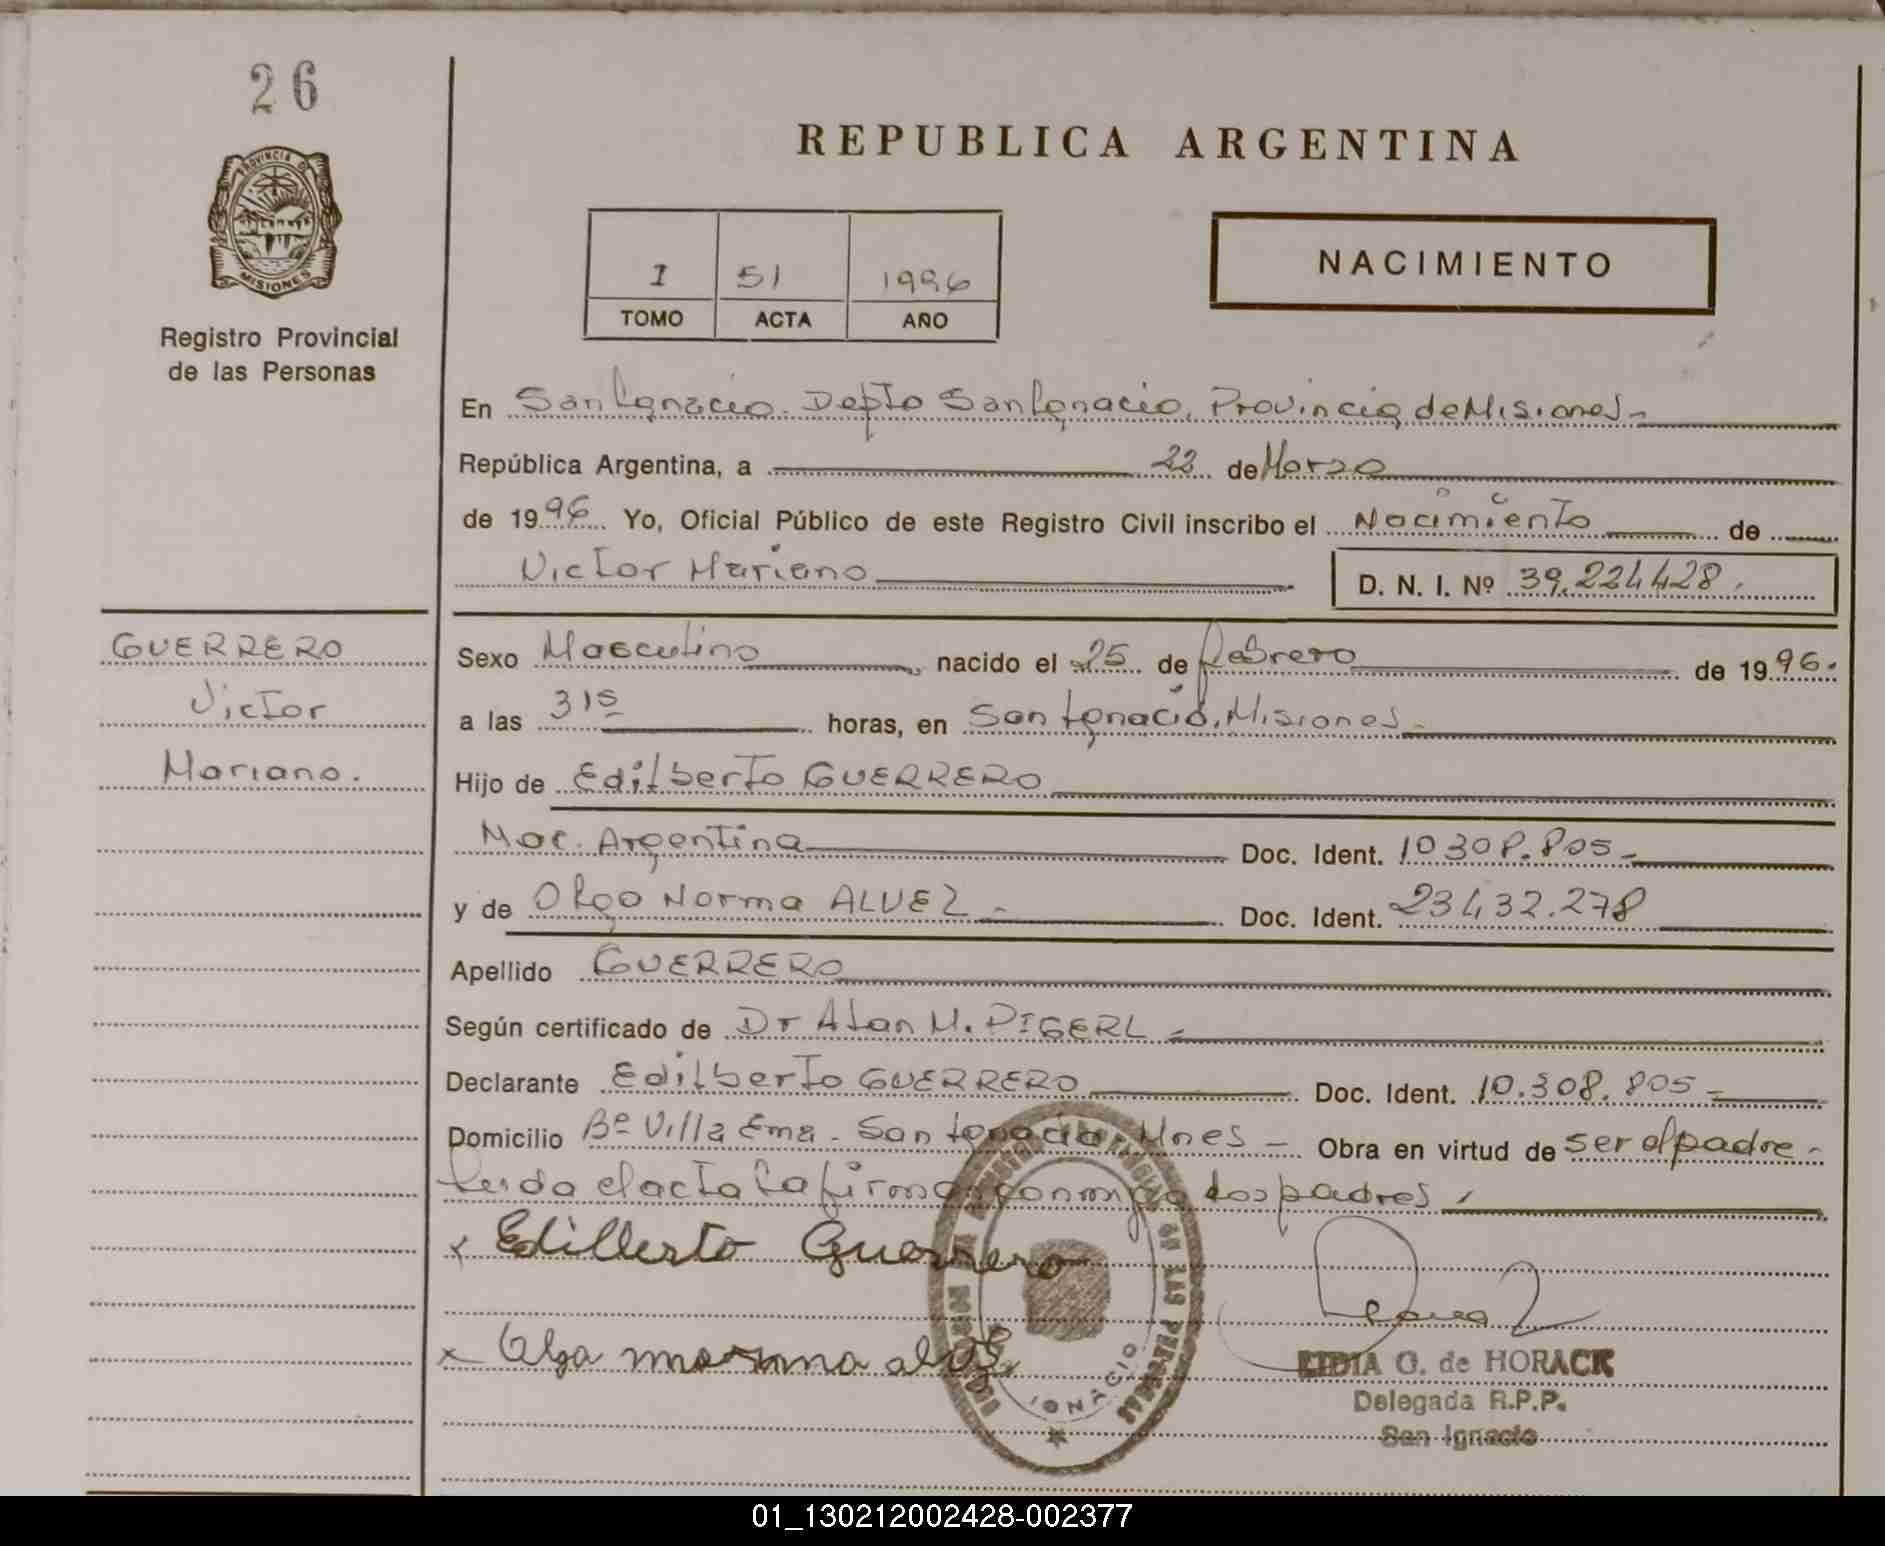 26
REPUBLICA ARGENTINA
PROVINCIA DE
MISIONES
Registro Provincial
de las Personas
I 51 1996
TOMO ACTA AÑO
NACIMIENTO
En San Ignacio. Depto San Ignacio, Provincia de Misiones-
República Argentina, a 22 de Marzo
de 1996 Yo, Oficial Público de este Registro Civil inscribo el Nacimiento de
Victor Mariano D. N. I. Nº 39.224428.
GUERRERO
Victor
Mariano.
Sexo Masculino, nacido el 25 de febrero de 1996.
a las 315 horas, en San Ignacio, Misiones-
Hijo de Edilberto GUERRERO
Nac. Argentina Doc. Ident. 10308.805-
y de Olga Norma ALVEZ - Doc. Ident. 23432.278
Apellido GUERRERO
Según certificado de Dr Alan M. PIGERL -
Declarante Edilberto GUERRERO Doc. Ident. 10.308.805-
Domicilio Bº Villa Ema - San Ignacio Mnes - Obra en virtud de ser el padre-
leida el acta la firman conmigo los padres,
x Edilberto Guerrero
x Olga norma
DE LAS PERSONAS
IGNACIO
LIDIA G. de HORACK
Delegada R.P.P.
San Ignacio
01_130212002428-002377